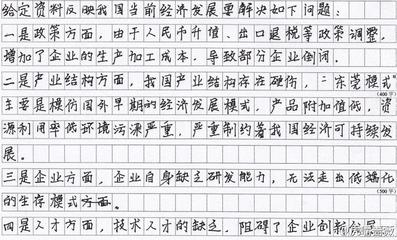 给定资料反映我国当前经济发展要解决如下问题：
一是政策方面，由于人民币升值、出口退税等政策调整，
增加了企业的生产加工成本，导致部分企业倒闭。
二是产业结构方面，我国产业结构存在硬伤，“东莞模式”
(400字)
主要是模仿国外早期的经济发展模式，产品附加值低，资
源利用率低环境污染严重，严重制约着我国经济可持续发
展。
三是企业方面，企业自身缺乏研发能力，无法走出低端化
(500字)
的生存模式方面。
四是人才方面，技术人才的缺乏，阻碍了企业创新发展